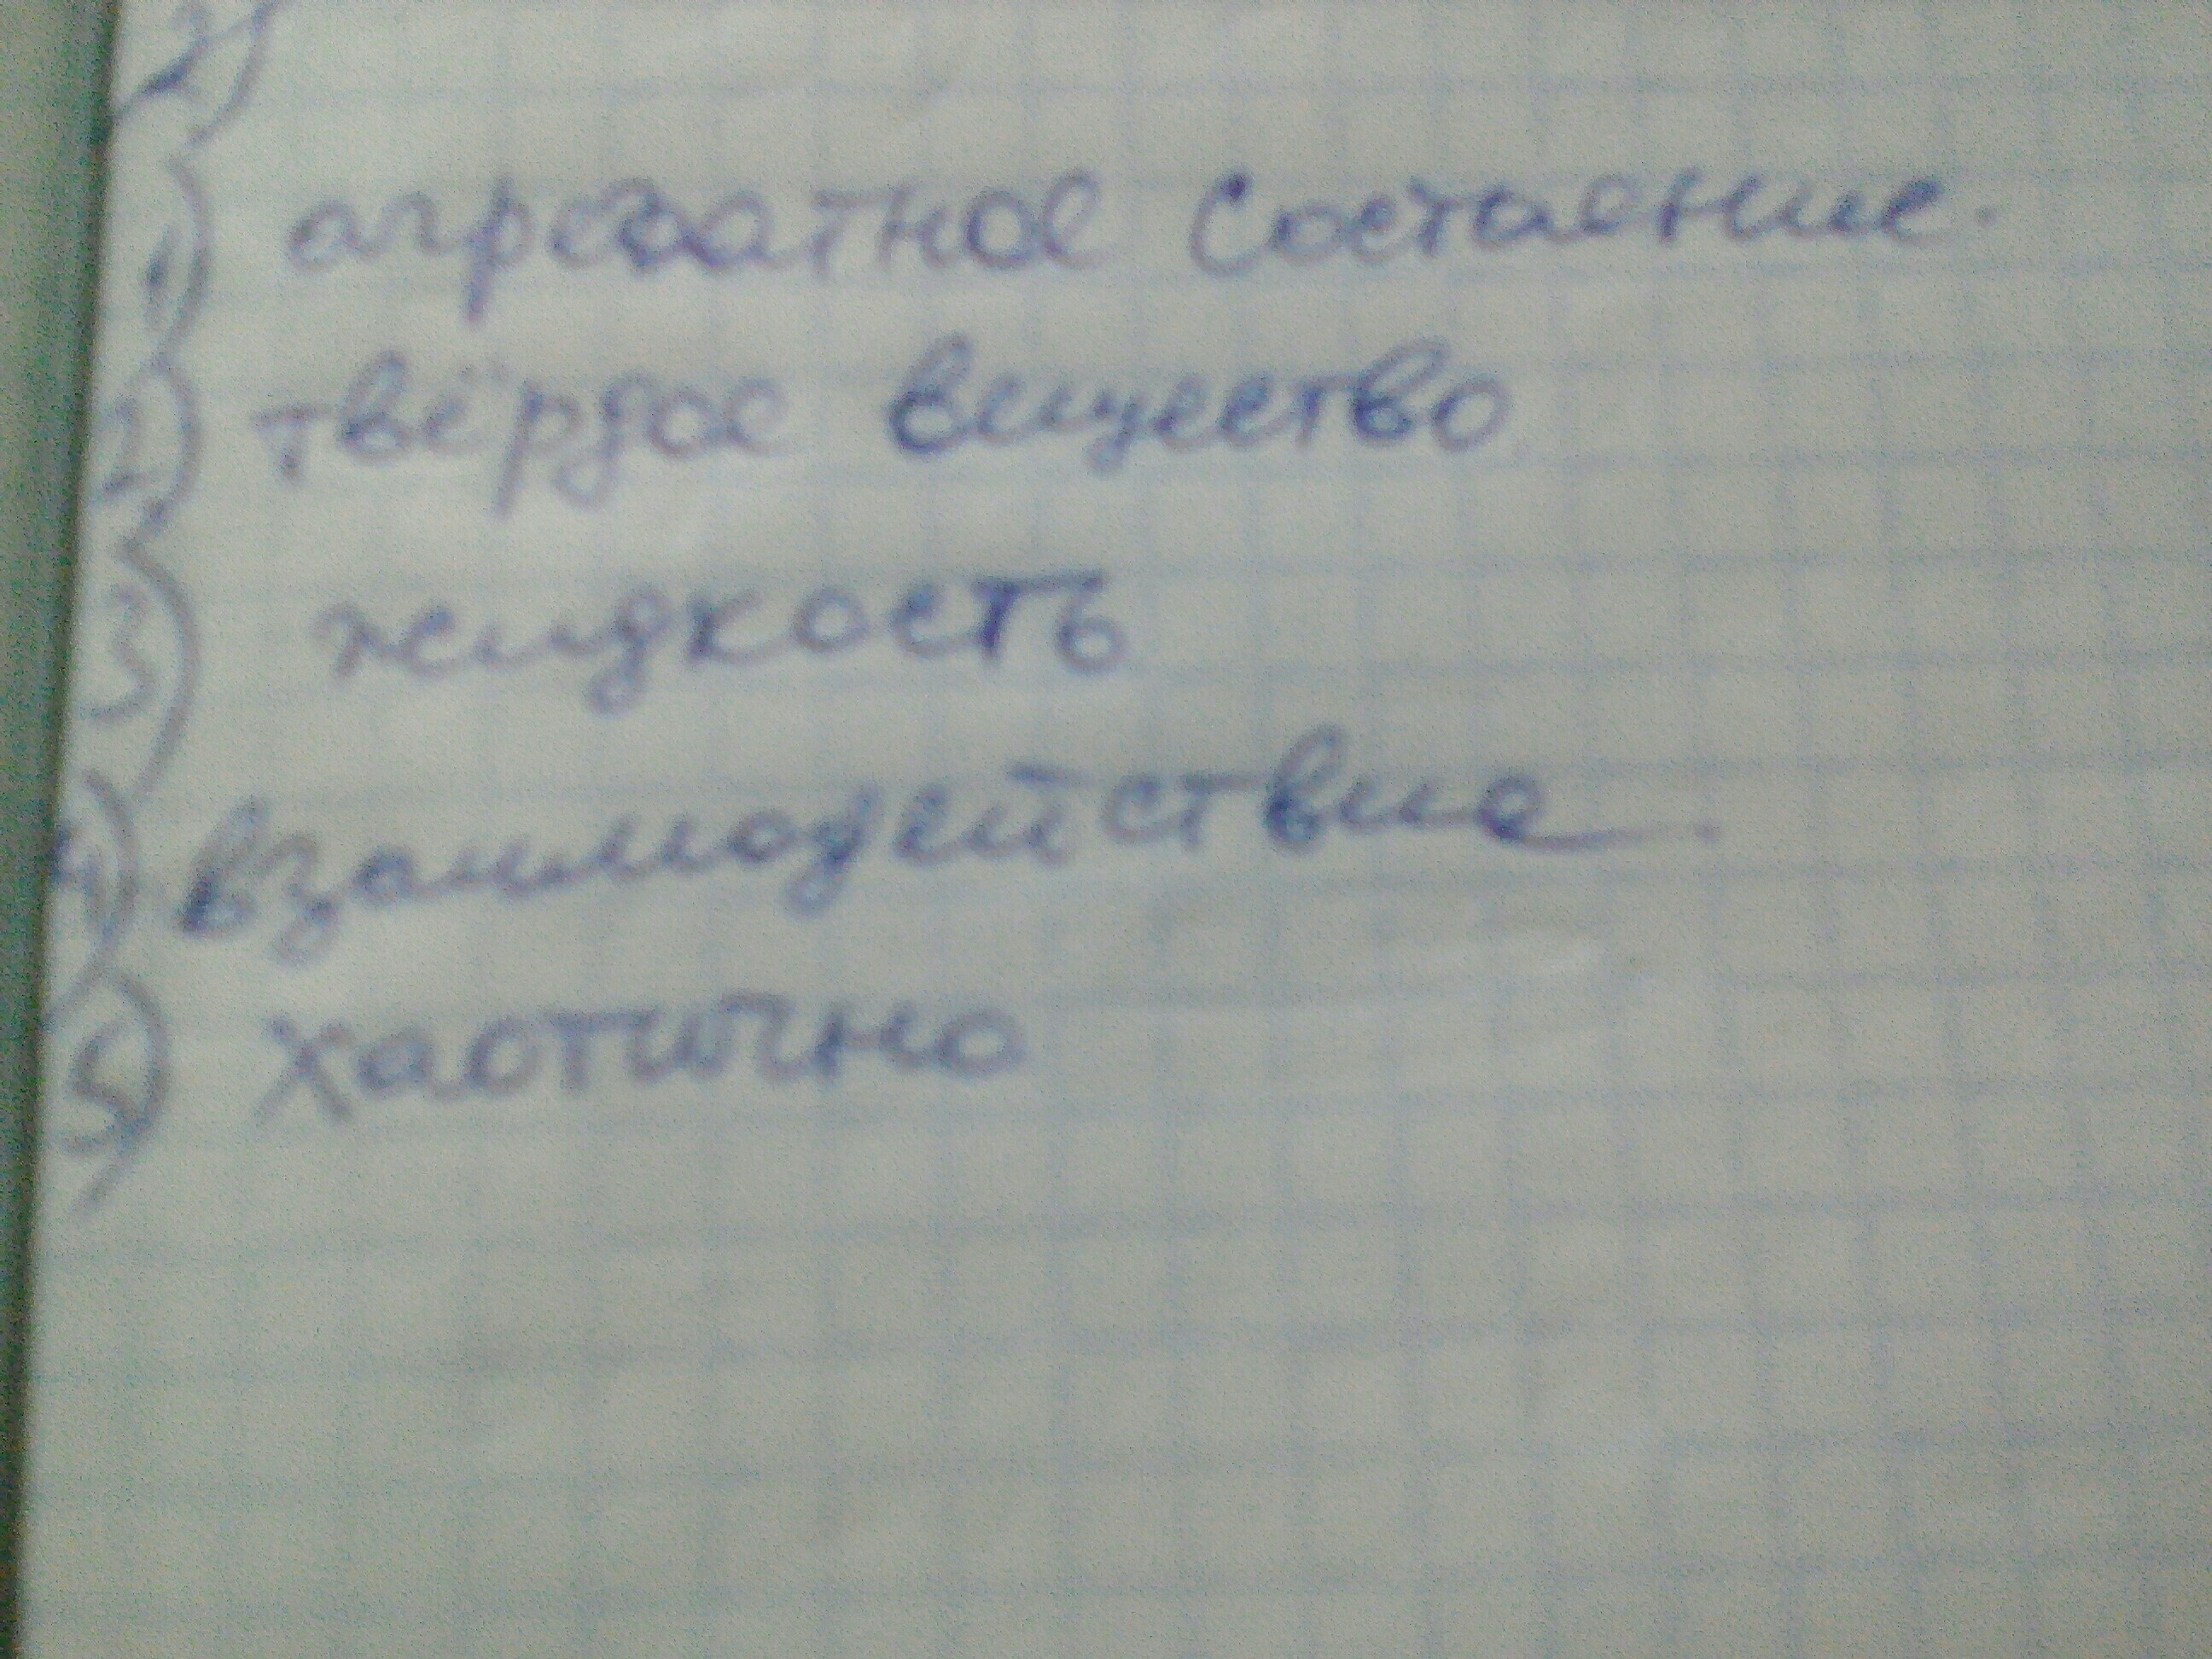 2)
1) агрегатное состояение.
2) твёрдое вещество
3) жидкость
4) взаимодействие.
5) хаотично